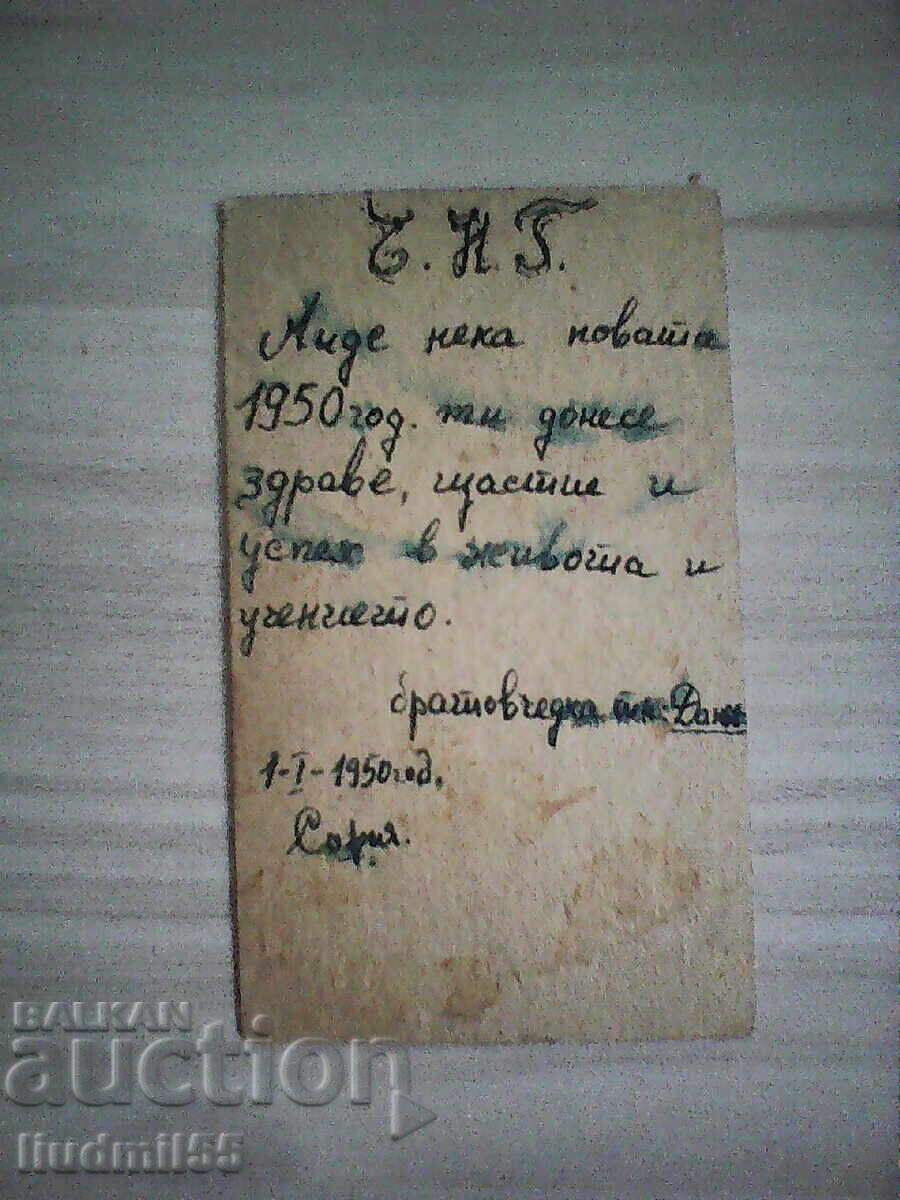 Ч.Н.Г.
Айде нека новата
1950 год. ти донесе
здраве, щастие и
успех в живота и
учението.
братовчедка ти:
1-I-1950 год.
София.
BALKAN
auction
liudmil55